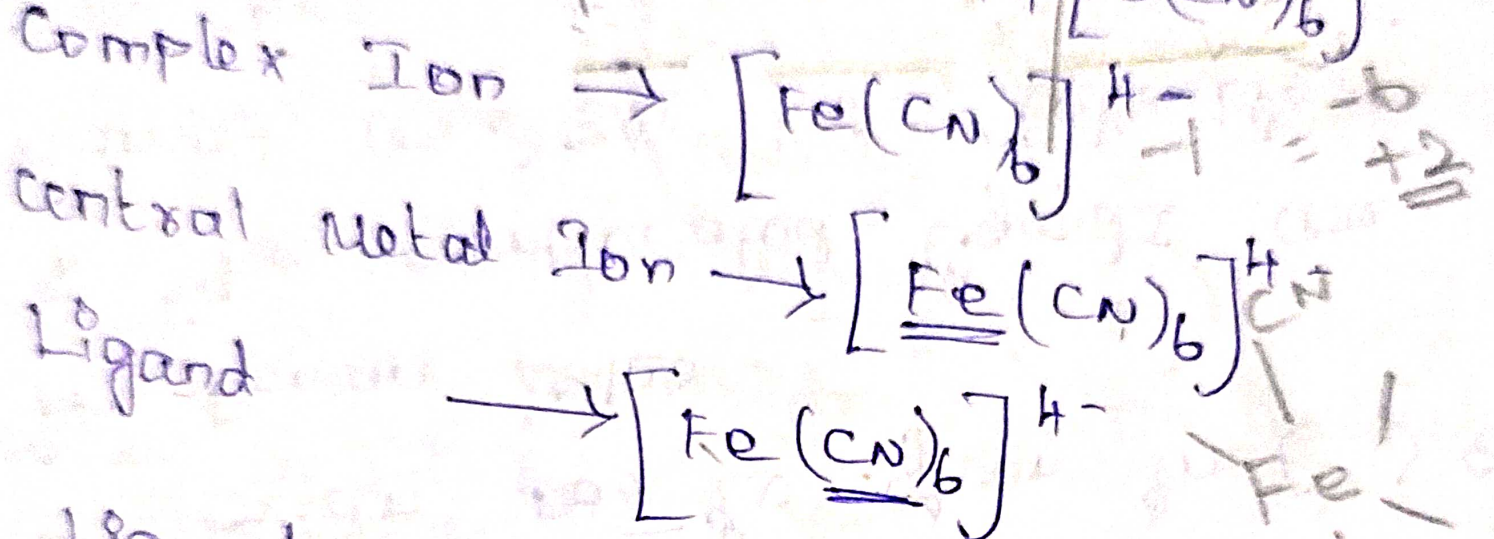 Complex Ion → [Fe(CN)6]4-
-1 = -6
+2
central Metal Ion → [Fe(CN)6]4
CN
Ligand → [Fe(CN)6]4-
Fe